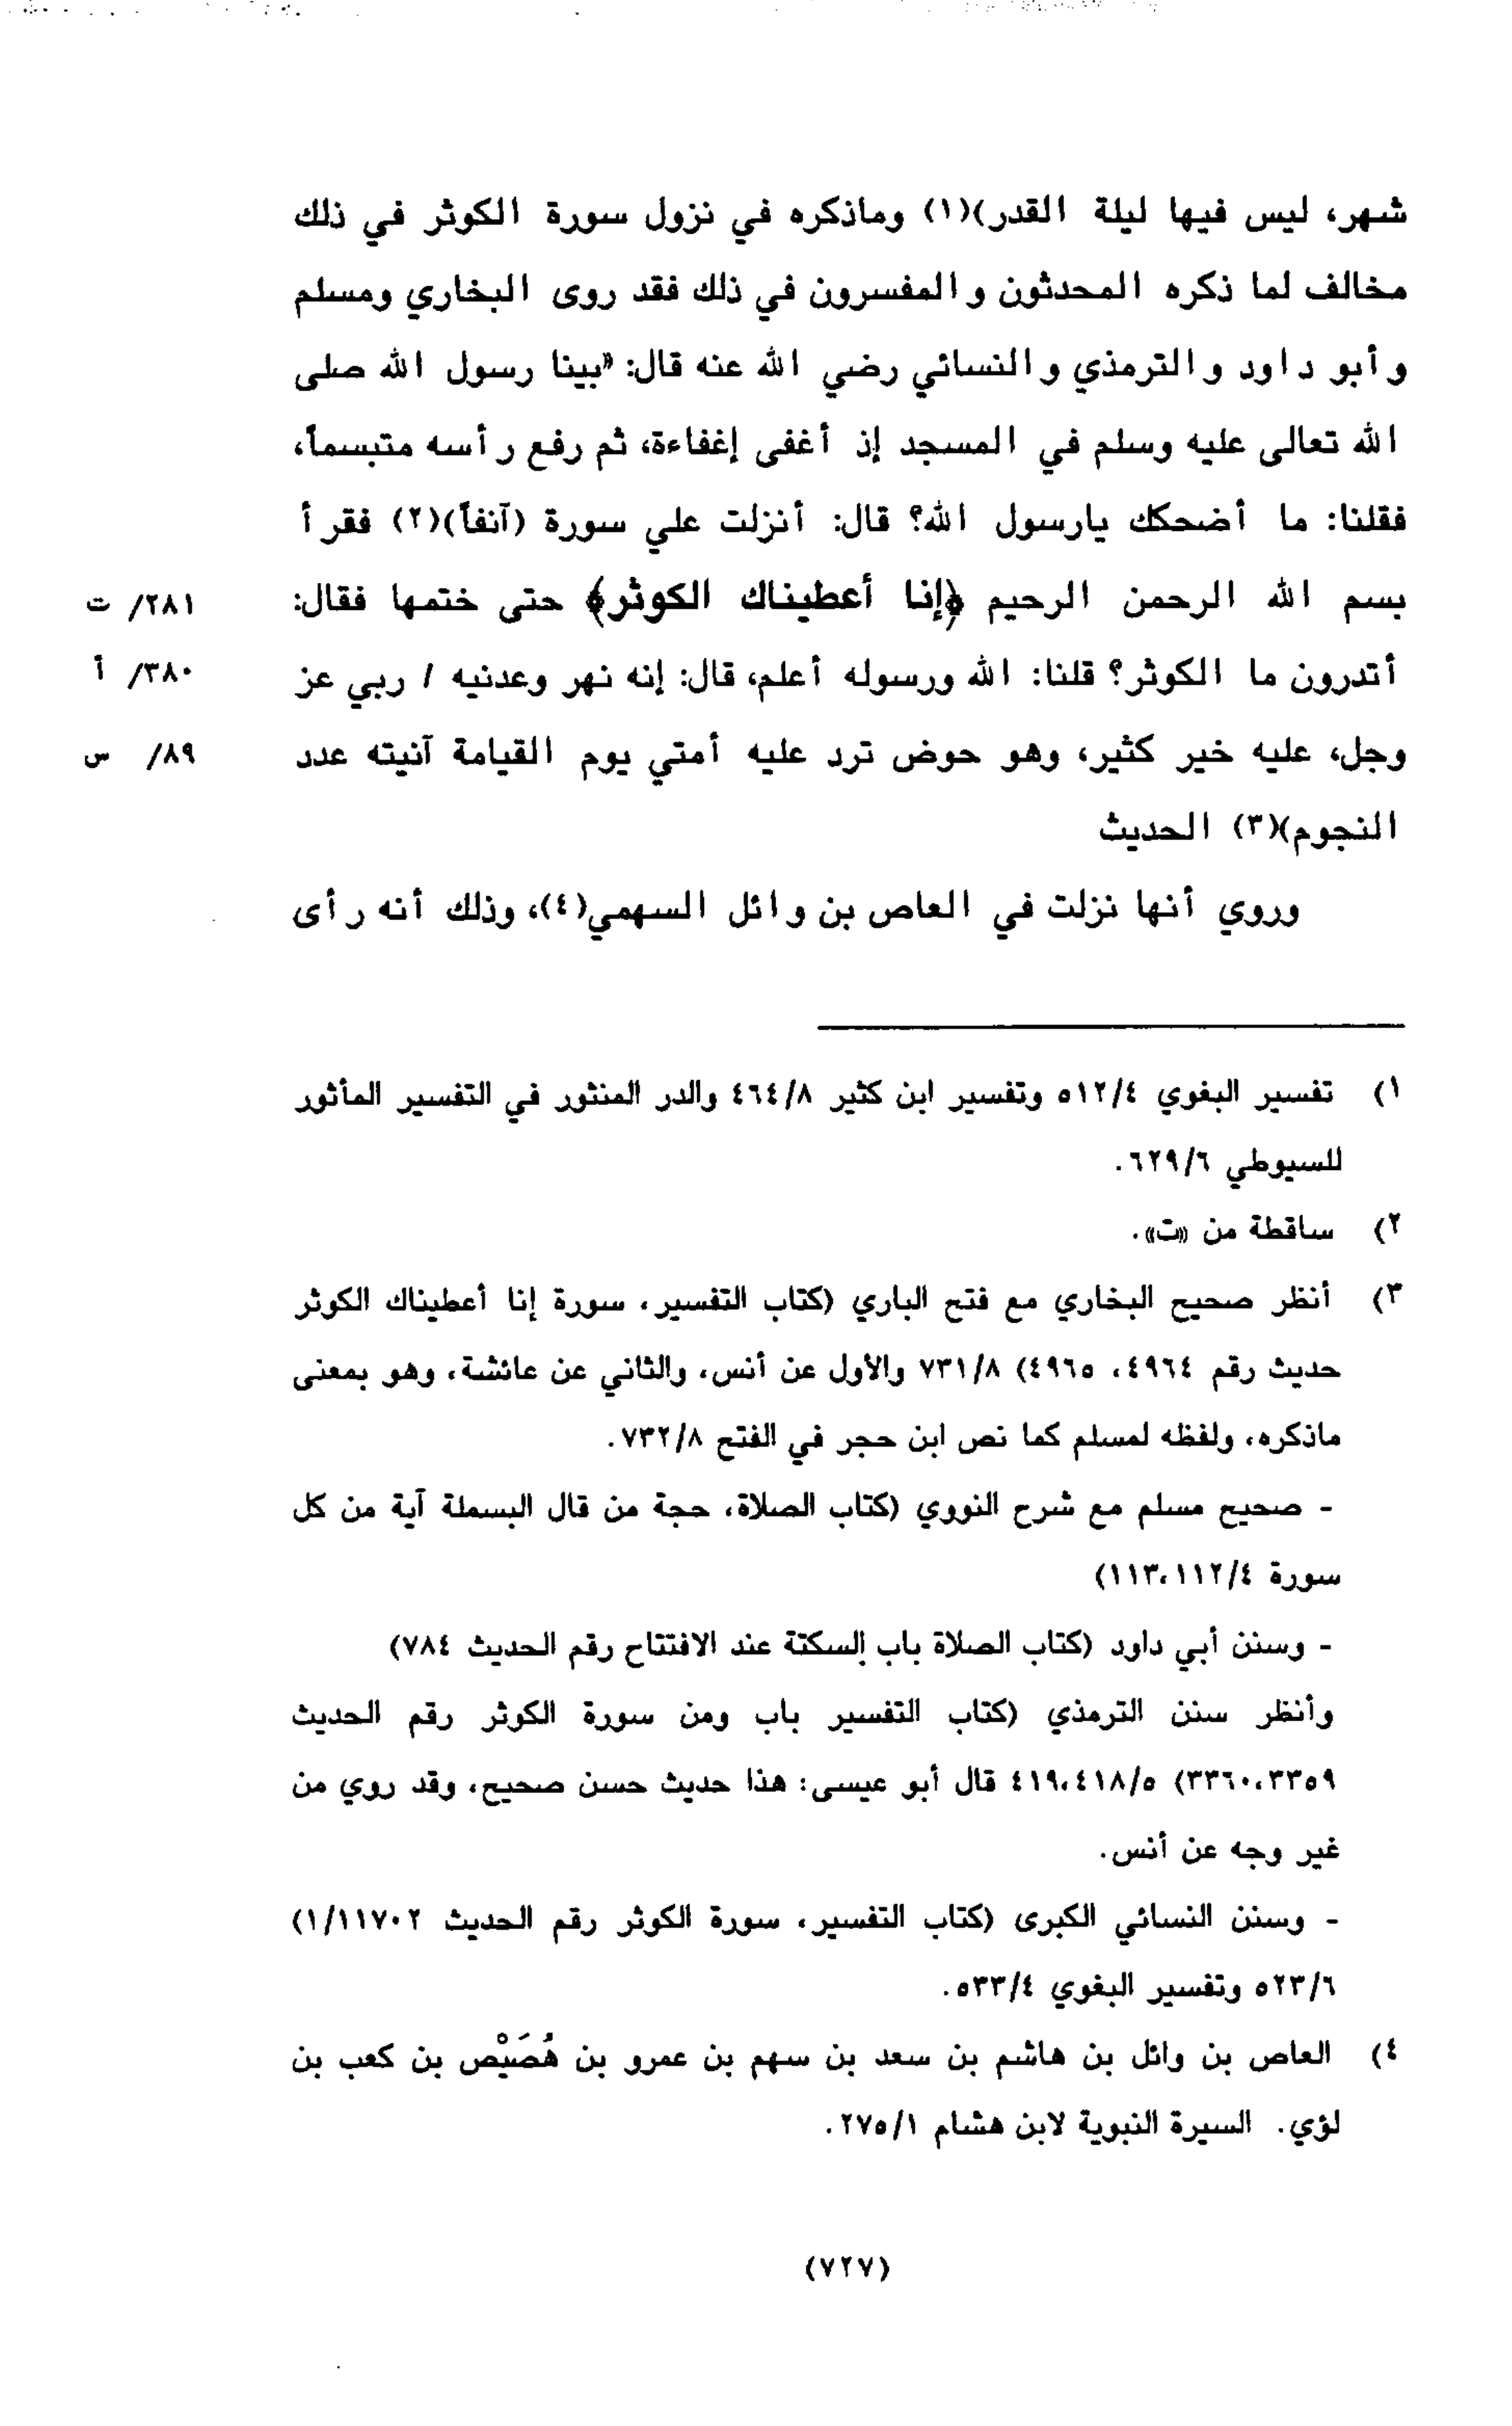 شهر، ليس فيها ليلة القدر)(١) وماذكره في نزول سورة الكوثر في ذلك
مخالف لما ذكره المحدثون والمفسرون في ذلك فقد روى البخاري ومسلم
وأبو داود والترمذي والنسائي رضي الله عنه قال: «بينا رسول الله صلى
الله تعالى عليه وسلم في المسجد إذ أغفى إغفاءة، ثم رفع رأسه متبسماً،
فقلنا: ما أضحكك يارسول الله؟ قال: أنزلت علي سورة (آنفاً)(٢) فقرأ
بسم الله الرحمن الرحيم ﴿إنا أعطيناك الكوثر﴾ حتى ختمها فقال: ٢٨١/ ت
أتدرون ما الكوثر؟ قلنا: الله ورسوله أعلم، قال: إنه نهر وعدنيه / ربي عز ٣٨٠/ أ
وجل، عليه خير كثير، وهو حوض ترد عليه أمتي يوم القيامة آنيته عدد ٨٩/ س
النجوم)(٣) الحديث
وروي أنها نزلت في العاص بن وائل السهمي(٤)، وذلك أنه رأى
١) تفسير البغوي ٥١٢/٤ وتفسير ابن كثير ٤٦٤/٨ والدر المنثور في التفسير المأثور
للسيوطي ٦٢٩/٦.
٢) ساقطة من «ت».
٣) أنظر صحيح البخاري مع فتح الباري (كتاب التفسير، سورة إنا أعطيناك الكوثر
حديث رقم ٤٩٦٤، ٤٩٦٥) ٧٣١/٨ والأول عن أنس، والثاني عن عائشة، وهو بمعنى
ماذكره، ولفظه لمسلم كما نص ابن حجر في الفتح ٧٣٢/٨.
- صحيح مسلم مع شرح النووي (كتاب الصلاة، حجة من قال البسملة آية من كل
سورة ١١٣،١١٢/٤)
- وسنن أبي داود (كتاب الصلاة باب السكتة عند الافتتاح رقم الحديث ٧٨٤)
وأنظر سنن الترمذي (كتاب التفسير باب ومن سورة الكوثر رقم الحديث
٣٣٦٠،٣٣٥٩) ٤١٩،٤١٨/٥ قال أبو عيسى: هذا حديث حسن صحيح، وقد روي من
غير وجه عن أنس.
- وسنن النسائي الكبرى (كتاب التفسير، سورة الكوثر رقم الحديث ١/١١٧٠٢)
٥٢٣/٦ وتفسير البغوي ٥٣٣/٤.
٤) العاص بن وائل بن هاشم بن سعد بن سهم بن عمرو بن هُصَيْص بن كعب بن
لؤي. السيرة النبوية لابن هشام ٢٧٥/١.
(٧٢٧)